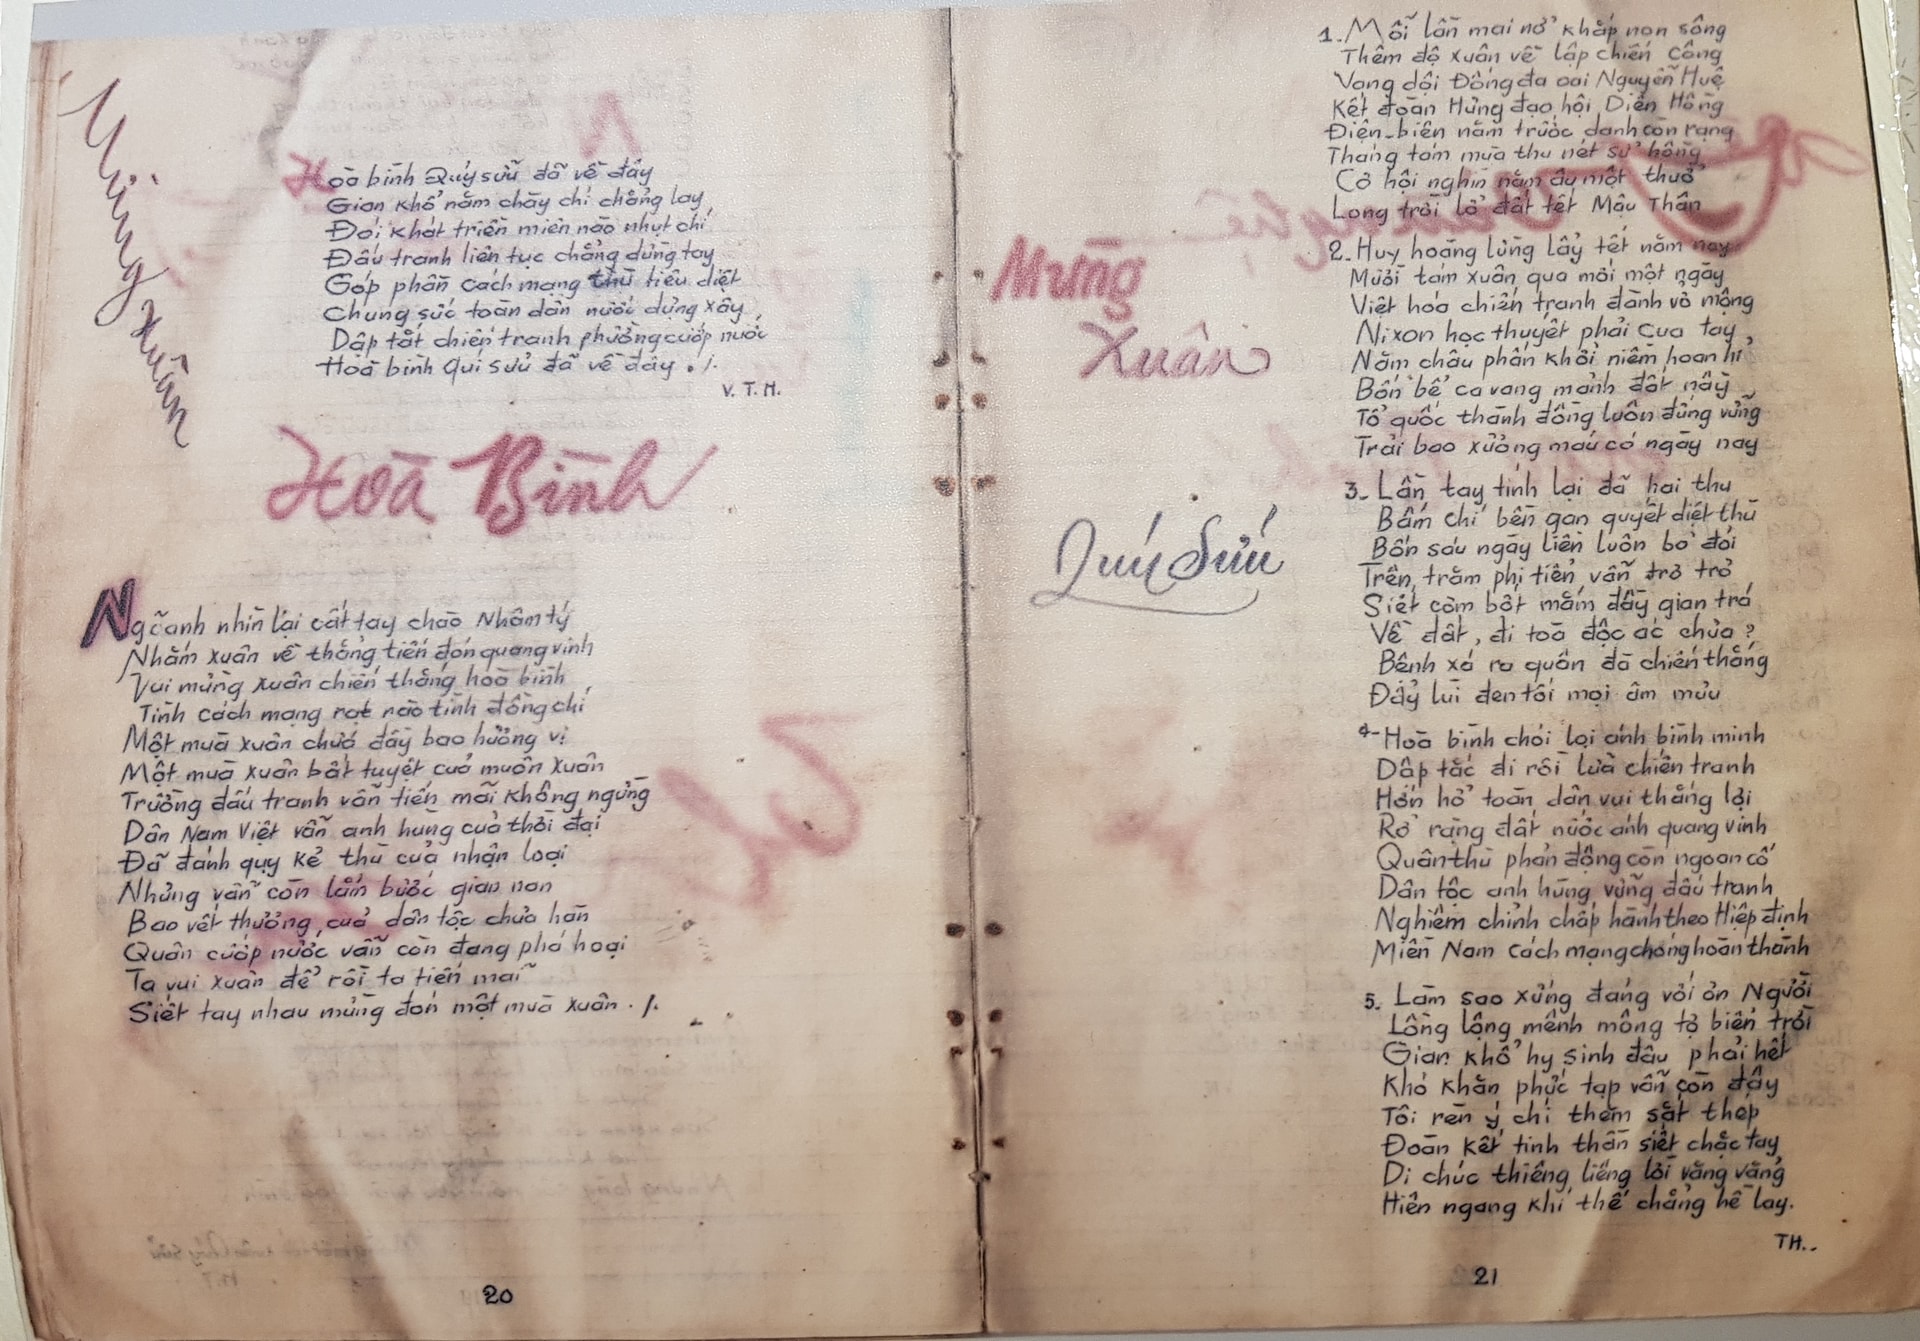 Mừng Xuân
Hoà bình Quý sửu đã về đây
Gian khổ năm chầy chí chẳng lay
Đói khát triền miên nào nhụt chí
Đấu tranh liên tục chẳng dừng tay
Góp phần cách mạng thù tiêu diệt
Chung sức toàn dân nước dựng xây
Dập tắt chiến tranh phường cướp nước
Hoà bình Quí sửu đã về đây ./.
V.T.H.
Hoà Bình
Ngoảnh nhìn lại cất tay chào Nhâm tý
Nhắm xuân về thẳng tiến đón quang vinh
Vui mừng xuân chiến thắng hoà bình
Tình cách mạng rạt rào tình đồng chí
Một muà xuân chưá đầy bao hương vị
Một muà xuân bất tuyệt cuả muôn xuân
Trường đấu tranh vẫn tiến mãi không ngừng
Dân Nam Việt vẫn anh hùng cuả thời đại
Đã đánh quỵ kẻ thù cuả nhân loại
Nhưng vẫn còn lắm bước gian nan
Bao vết thương cuả dân tộc chưa hàn
Quân cướp nước vẫn còn đang phá hoại
Ta vui xuân để rồi ta tiến mãi
Siết tay nhau mừng đón một muà xuân ./.
20
Mừng
Xuân
Quý Sửu
1. Mỗi lần mai nở khắp non sông
Thêm độ xuân về lập chiến công
Vang dội Đống đa oai Nguyễn Huệ
Kết đoàn Hưng đạo hội Diên Hồng
Điện-biên năm trước danh còn rạng
Tháng tám muà thu nét sử hồng
Cơ hội nghìn năm âu một thuở
Long trời lở đất tết Mậu Thân
2. Huy hoàng lừng lẫy tết năm nay
Mười tám xuân qua mới một ngày
Việt hoá chiến tranh đành vỡ mộng
Nixon học thuyết phải cua tay
Năm châu phấn khởi niềm hoan hỉ
Bốn bể ca vang mảnh đất nầy
Tổ quốc thành đồng luôn đứng vững
Trải bao xương máu có ngày nay
3. Lần tay tính lại đã hai thu
Bấm chí bền gan quyết diệt thù
Bốn sáu ngày liền luôn bỏ đói
Trên trăm phi tiễn vẫn trơ trơ
Siết còm bót mắm đầy gian trá
Về đất, đi toà độc ác chưa ?
Bênh xá ra quân đã chiến thắng
Đẩy lùi đen tối mọi âm mưu
4- Hoà bình chói lọi ánh bình minh
Dập tắc đi rồi lửa chiến tranh
Hớn hở toàn dân vui thắng lợi
Rỡ ràng đất nước ánh quang vinh
Quân thù phản động còn ngoan cố
Dân tộc anh hùng vững đấu tranh
Nghiêm chỉnh chấp hành theo Hiệp định
Miền Nam cách mạng chóng hoàn thành
5. Làm sao xứng đáng với ơn Người
Lồng lộng mênh mông tợ biển trời
Gian khổ hy sinh đâu phải hết
Khó khăn phức tạp vẫn còn đây
Tôi rèn ý chí thêm sắt thép
Đoàn kết tinh thần siết chặc tay
Di chúc thiêng liêng lời văng vẳng
Hiên ngang khí thế chẳng hề lay.
TH..
21